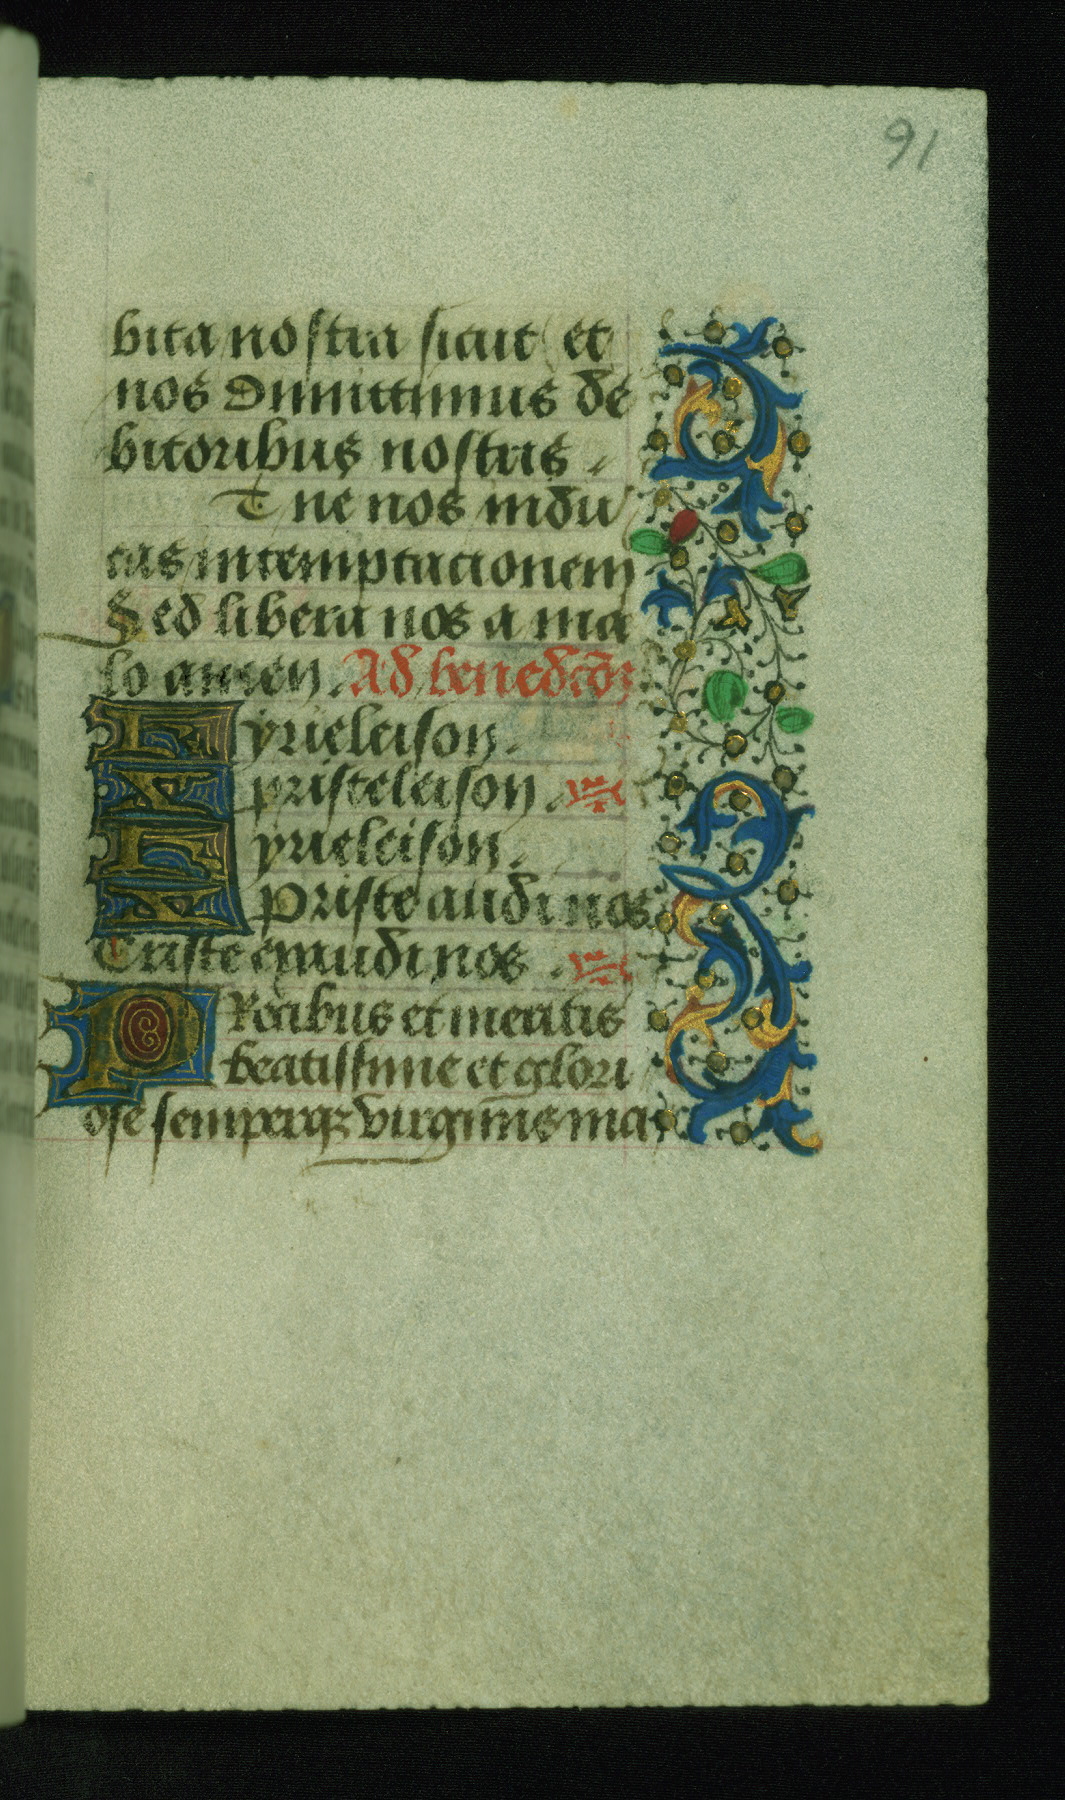 91
bita nostra sicut et
nos dimittimus de
bitoribus nostris
Et ne nos indu
cas in temptacionem
Sed libera nos a ma
lo amen. Ad benedictõz
Kyrieleison.
Xpristeleison.
Kyrieleison.
Xpriste audi nos
Criste exaudi nos.
PRecibus et meritis
beatissime et glori
ose semperqz virginis marie